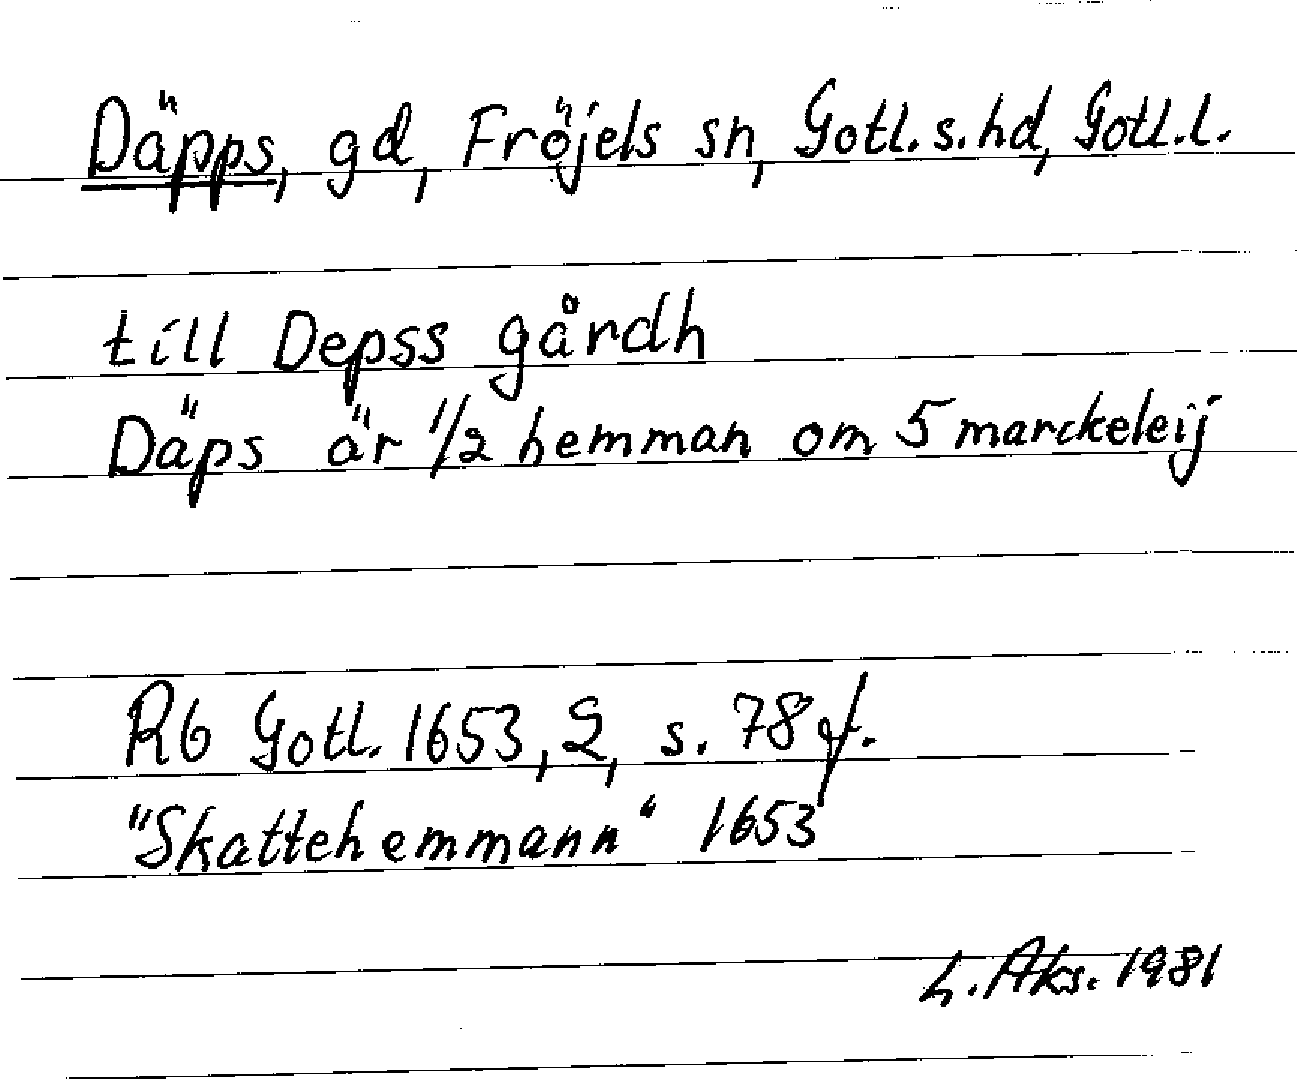 Däpps, gd, Fröjels sn, Gotl. s. hd, Gotl. l.
till Depss gårdh
Däps är 1/2 hemman om 5 marckeleij
Rb Gotl. 1653, 2, s. 78 f.
"Skattehemmann" 1653
L. Aks. 1981